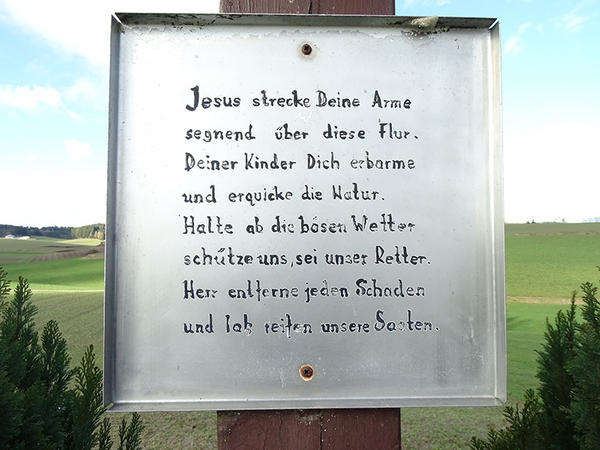 Jesus strecke Deine Arme
segnend über diese Flur.
Deiner Kinder Dich erbarme
und erquicke die Natur.
Halte ab die bösen Wetter
schütze uns, sei unser Retter.
Herr entferne jeden Schaden
und laß reifen unsere Saaten.